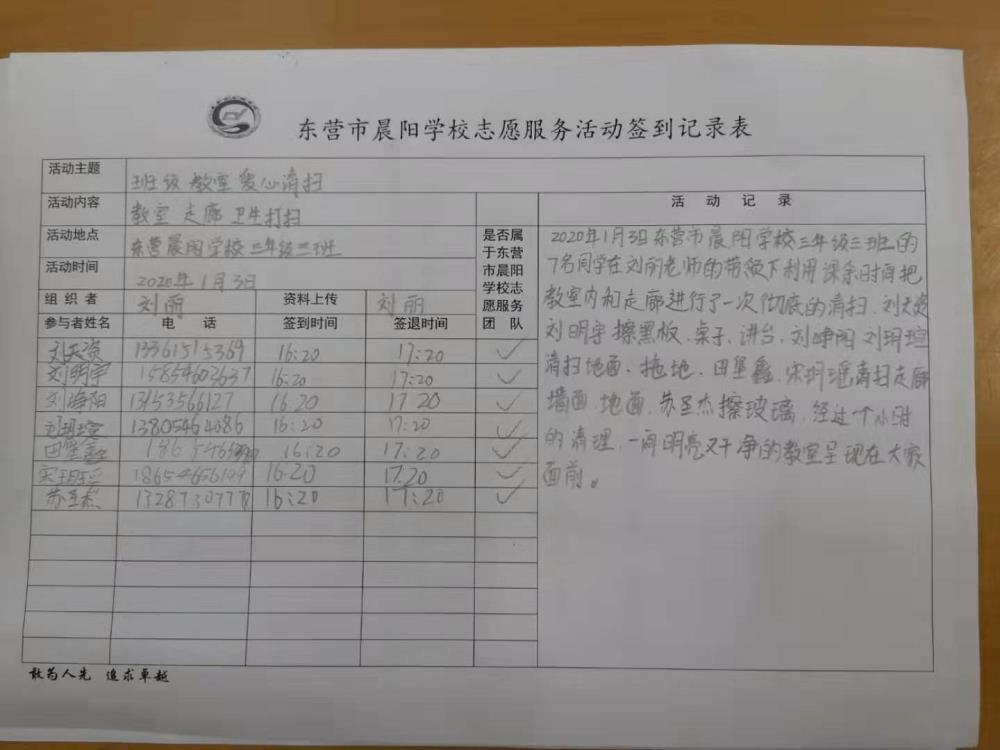 东营市晨阳学校志愿服务活动签到记录表
活动主题 班级 教室 爱心清扫
活动内容 教室 走廊 卫生打扫
活动地点 东营晨阳学校三年级三班
活动时间 2020年1月3日
组织者 刘丽 资料上传 刘丽
参与者姓名 电话 签到时间 签退时间 是否属于东营市晨阳学校志愿服务团队
刘天资 13361515369 16:20 17:20 ✓
刘明宇 15854603637 16:20 17:20 ✓
刘峥阳 13153566127 16:20 17:20 ✓
刘玥瑄 13805464086 16:20 17:20 ✓
田堡鑫 16:20 17:20 ✓
16:20 17:20 ✓
苏圣杰 16:20 17:20 ✓
活动记录
2020年1月3日东营市晨阳学校三年级三班的
7名同学在刘丽老师的带领下利用课余时间把
教室内和走廊进行了一次彻底的清扫。刘天资
刘明宇擦黑板、桌子、讲台、刘峥阳 刘玥瑄
清扫地面、拖地、田堡鑫、宋玥瑶清扫走廊
墙面、地面,苏圣杰擦玻璃,经过一个小时
的清理,一间明亮又干净的教室呈现在大家
面前。
敢为人先 追求卓越